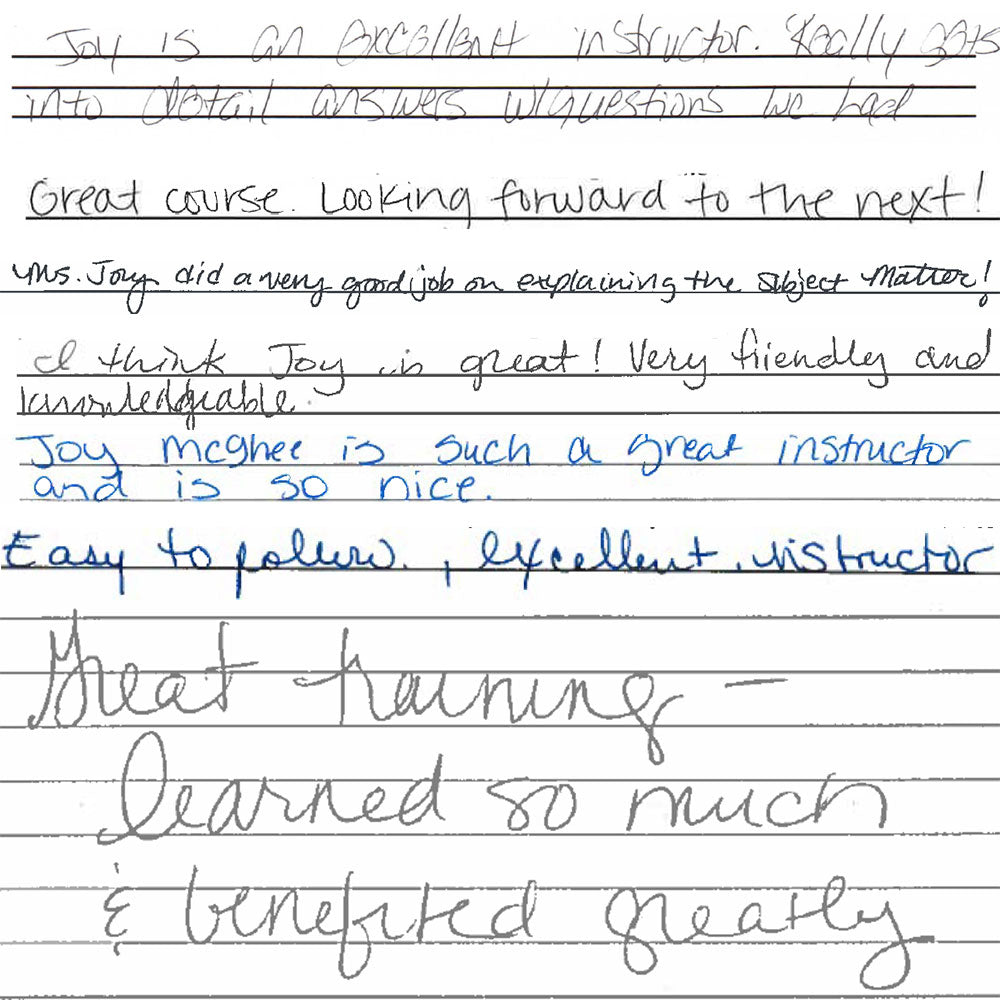 Joy is an excellent instructor. Really gets
into detail answers w/questions we had
Great course. Looking forward to the next!
Ms. Joy did a very good job on explaining the subject matter!
I think Joy is great! Very friendly and
knowledgeable.
Joy mcghee is such a great instructor
and is so nice.
Easy to follow., excellent instructor
Great training –
learned so much
& benefited greatly